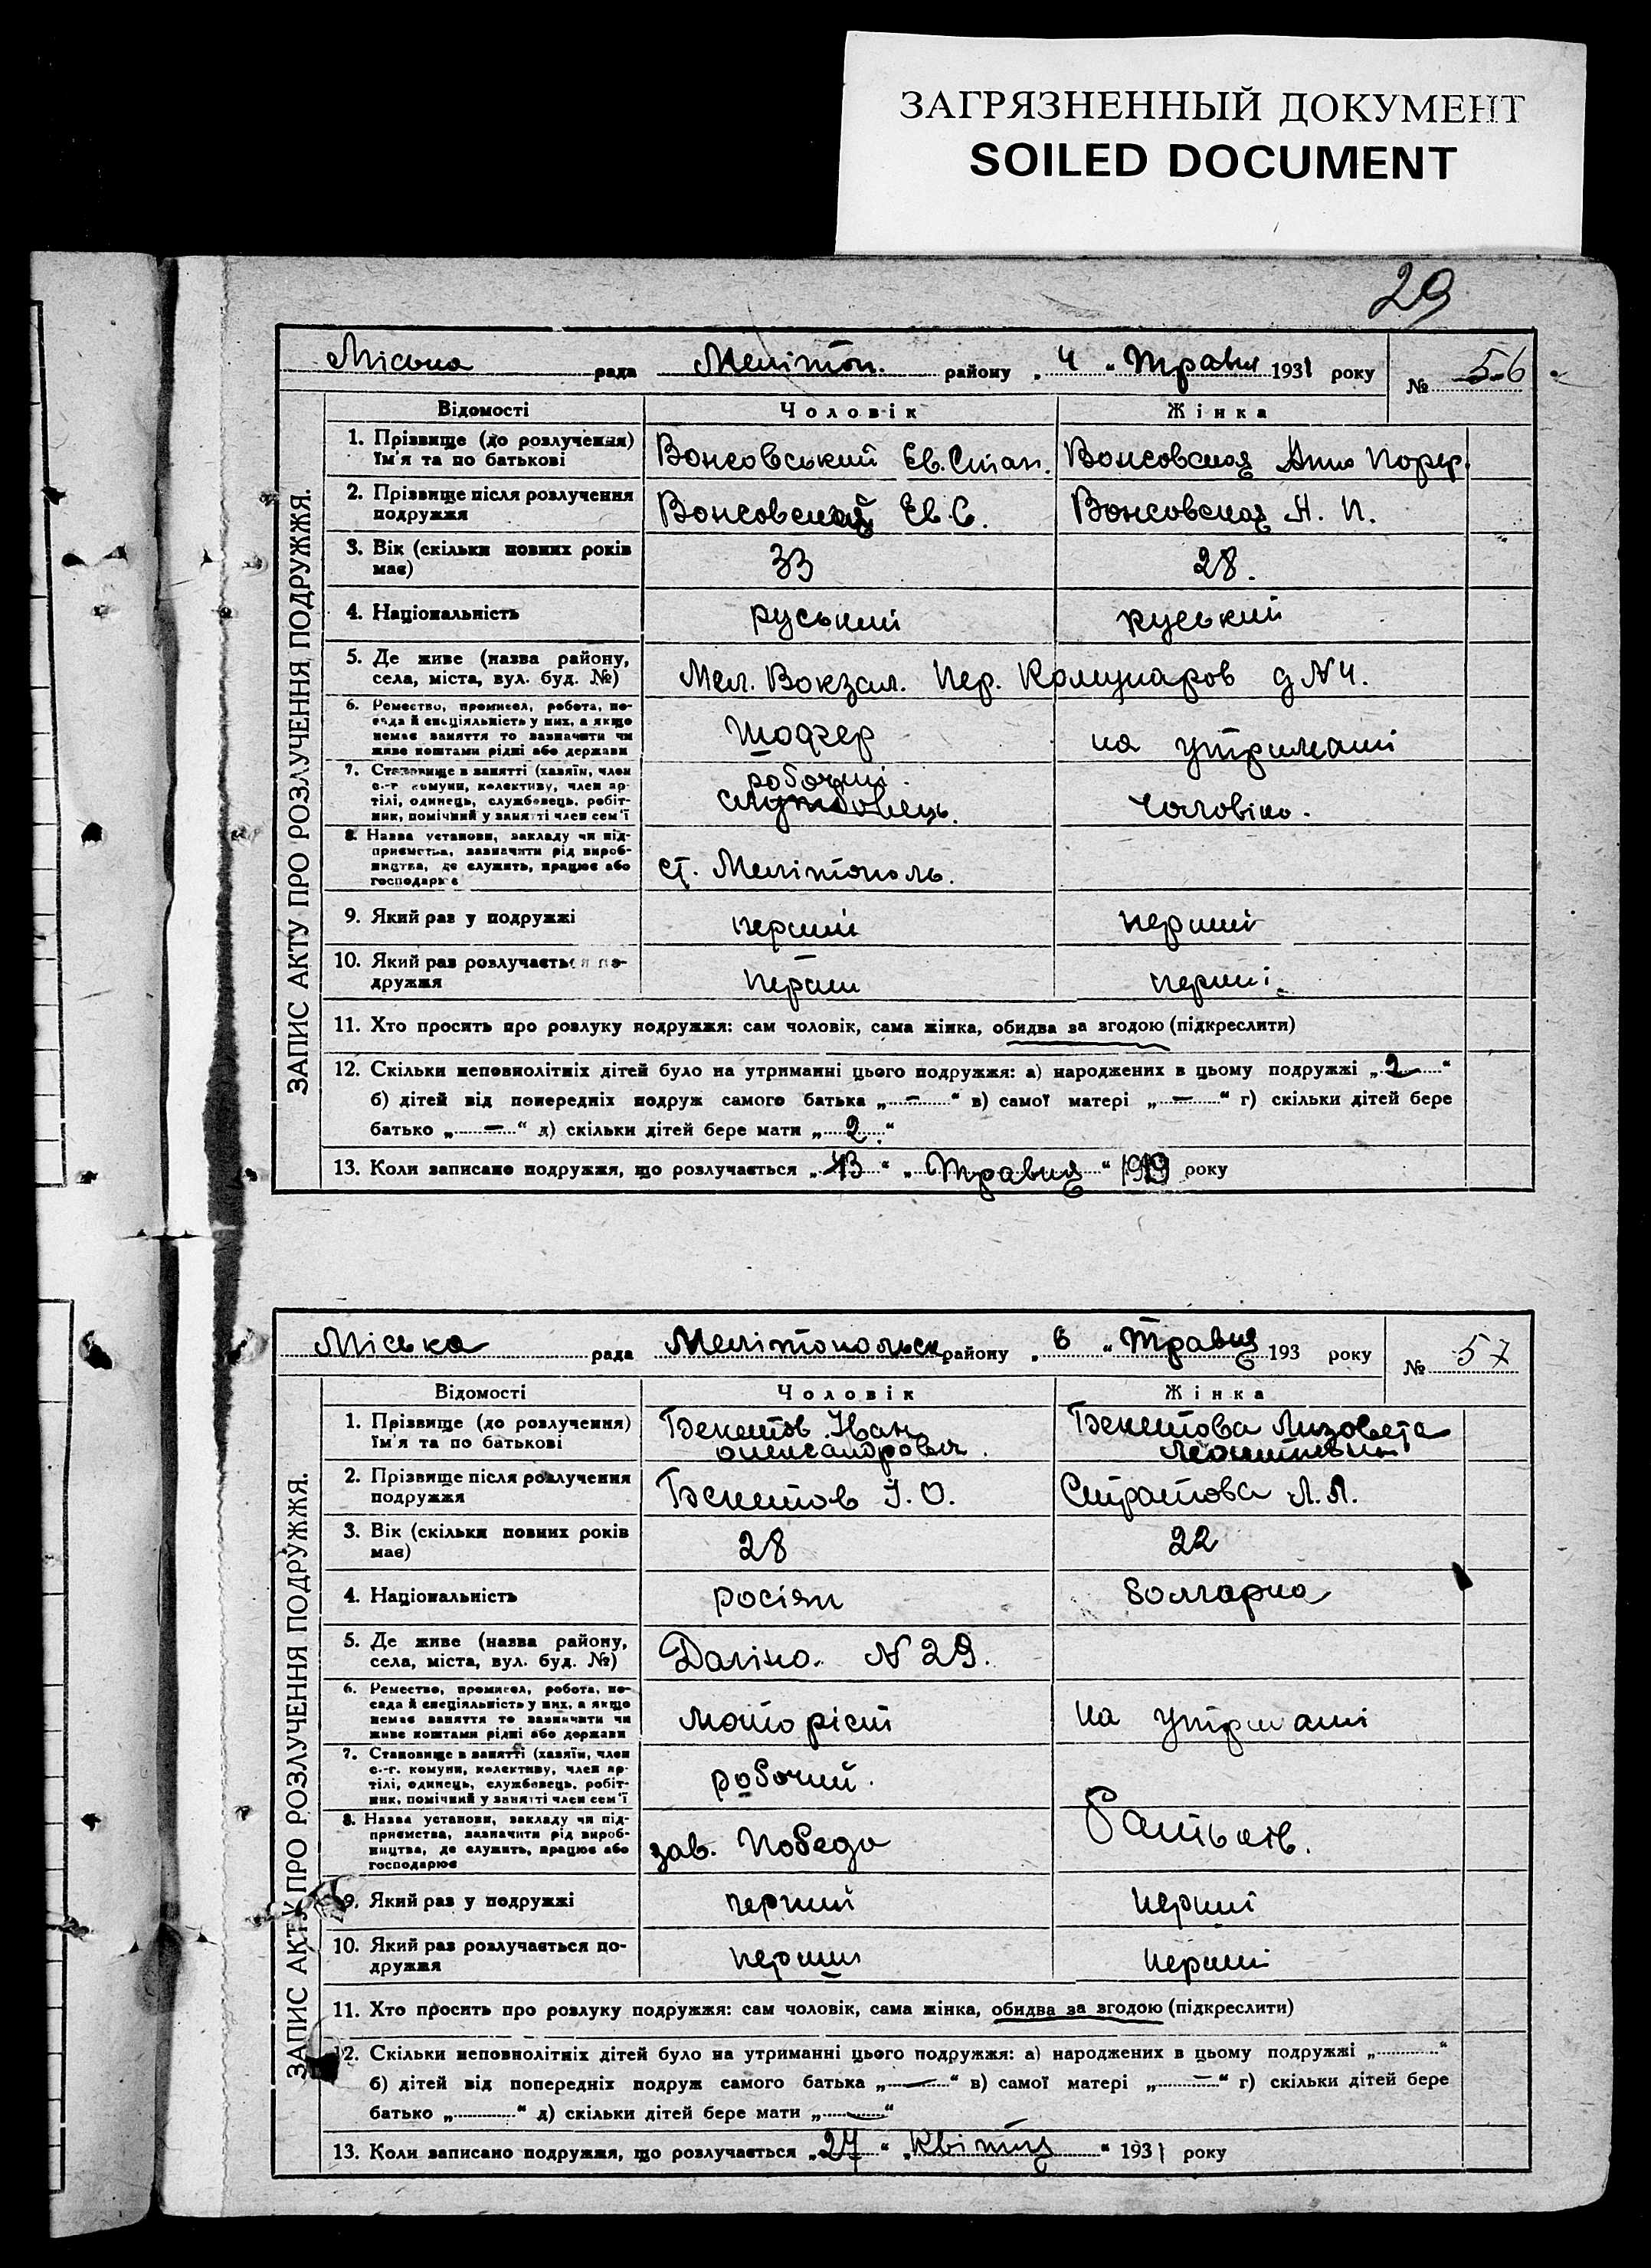 ЗАГРЯЗНЕННЫЙ ДОКУМЕНТ
SOILED DOCUMENT
29
ЗАПИС АКТУ ПРО РОЗЛУЧЕННЯ ПОДРУЖЖЯ.
Міська рада Мелітоп. району „ 4 „ Травня 1931 року № 56
Відомості Чоловік Жінка
1. Прізвище (до розлучення) їм'я та по батькові Вонсовський Ев. Стап. Вонсовская Анна Порф.
2. Прізвище після розлучення подружжя Вонсовский Ев. С. Вонсовская А. П.
3. Вік (скільки повних років має) 33 28.
4. Національність руський руський
5. Де живе (назва району, села, міста, вул. буд. №) Мел. Вокзал. Пер. Комунаров д N 4.
6. Ремество, промисел, робота, посада й спеціяльність у них, а якщо немає заняття то зазначити чи живе коштами рідні або держави Шофер на утримані
7. Становище в занятті (хазяїн, член с.-г. комуни, колективу, член артілі, одинець, службовець, робітник, помічний у занятті член сем'ї робочий. службовець. чоловіка.
8. Назва установи, закладу чи підприємства, зазначити рід виробництва, де служить, працює або господарює ст. Мелітополь.
9. Який раз у подружжі перший перший
10. Який раз розлучається подружжя перши перші
11. Хто просить про розлуку подружжя: сам чоловік, сама жінка, обидва за згодою (підкреслити)
12. Скільки неповнолітніх дітей було на утриманні цього подружжя: а) народжених в цьому подружжі „ 2 “
б) дітей від попередніх подруж самого батька „ – “ в) самої матері „ – “ г) скільки дітей бере
батько „ – “ д) скільки дітей бере мати „ 2 “
13. Коли записано подружжя, що розлучається „ 13 “ „ Травня “ 1919 року
ЗАПИС АКТУ ПРО РОЗЛУЧЕННЯ ПОДРУЖЖЯ.
Міська рада Мелітопольск району „ 6 „ Травня 193 року № 57
Відомості Чоловік Жінка
1. Прізвище (до розлучення) їм'я та по батькові Бекетов Іван олександрович. Бекетова Лизовета
2. Прізвище після розлучення подружжя Бекетов І. О. Стратова Л. Л.
3. Вік (скільки повних років має) 28 22
4. Національність росіян болгарка
5. Де живе (назва району, села, міста, вул. буд. №) N 29.
6. Ремество, промисел, робота, посада й спеціяльність у них, а якщо немає заняття то зазначити чи живе коштами рідні або держави моторіст на утримані
7. Становище в занятті (хазяїн, член с.-г. комуни, колективу, член артілі, одинець, службовець, робітник, помічний у занятті член сем'ї робочий.
8. Назва установи, закладу чи підприємства, зазначити рід виробництва, де служить, працює або господарює зав. Победа батьків.
9. Який раз у подружжі перший перший
10. Який раз розлучається подружжя перший перший
11. Хто просить про розлуку подружжя: сам чоловік, сама жінка, обидва за згодою (підкреслити)
12. Скільки неповнолітніх дітей було на утриманні цього подружжя: а) народжених в цьому подружжі „ “
б) дітей від попередніх подруж самого батька „ – “ в) самої матері „ – “ г) скільки дітей бере
батько „ “ д) скільки дітей бере мати „ – “
13. Коли записано подружжя, що розлучається „ 27 “ „ Квітня “ 1931 року